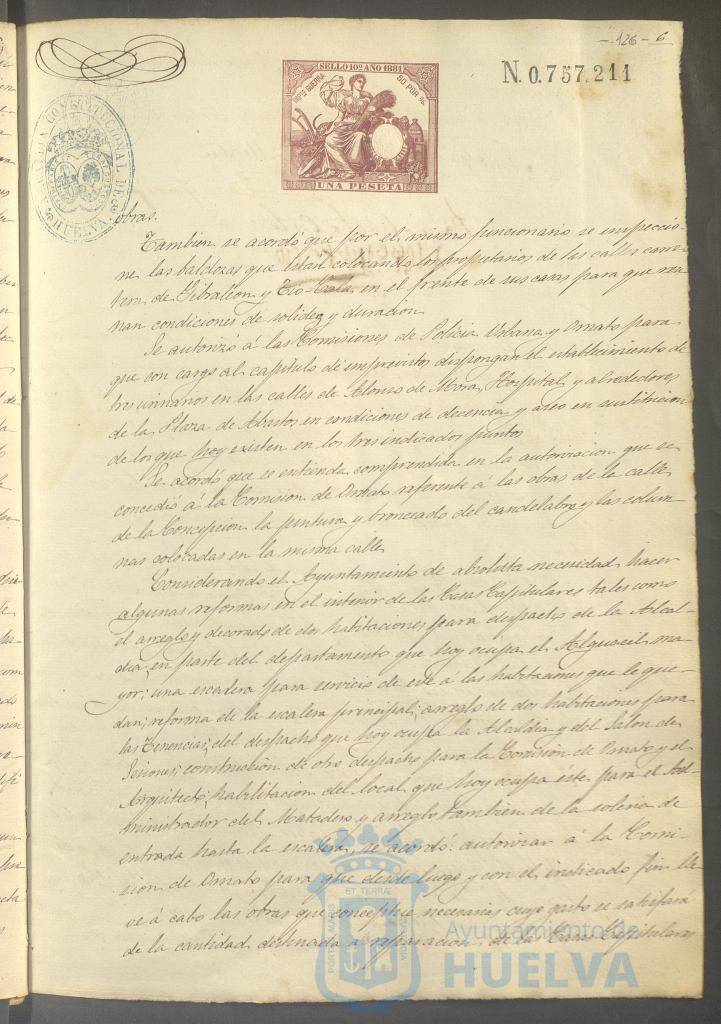 - 126 - 6
SELLO 10º AÑO 1881
IMPTO GUERRA 50 POR %
UNA PESETA
N. 0.757.211
CONSTITUCIONAL DE
HUELVA
obras.
Tambien se acordó que por el mismo funcionario se inspeccio-
ne las baldosas que estan colocando los propietarios de las calles carre-
tera de Gibraleon y Tio-Cala, en el frente de sus casas para que reu-
nan condiciones de solidez y duracion.
Se autorizó á las Comisiones de Policia Urbana y Ornato para
que con cargo al capitulo de imprevistos dispongan el establecimiento de
tres urinarios en las calles de Alonso de Mora, Hospital y alrededores
de la Plaza de Abastos en condiciones de decencia y aseo en sustitucion
de los que hoy existen en los tres indicados puntos
Se acordó que se entienda comprendida en la autorizacion que se
concedió á la Comision de Ornato referente á las obras de la calle
de la Concepcion la pintura y bronceado del candelabro y las colum-
nas colocadas en la misma calle
Considerando el Ayuntamiento de absoluta necesidad hacer
algunas reformas en el interior de las Casas Capitulares tales como
el arreglo y decorado de dos habitaciones para despacho de la Alcal-
dia; en parte del departamento que hoy ocupa el Alguacil ma-
yor; una escalera para servicio de este á las habitaciones que le que-
dan; reforma de la escalera principal; arreglo de dos habitaciones para
las Tenencias; del despacho que hoy ocupa la Alcaldia y del Salon de
Sesiones; construccion de otro despacho para la Comision de Ornato y el
Arquitecto; habilitacion del local que hoy ocupa éste para el Ad-
ministrador del Matadero y arreglo tambien de la soleria de
entrada hasta la escalera, se acordó: autorizar á la Comi-
sion de Ornato para que desde luego y con el indicado fin lle-
ve á cabo las obras que conceptue necesarias cuyo gasto se satisfará
de la cantidad destinada a reparacion de la Casas Capitulares
PORTUS MARIS ET TERRÆ CUSTODIA
Ayuntamiento de
HUELVA